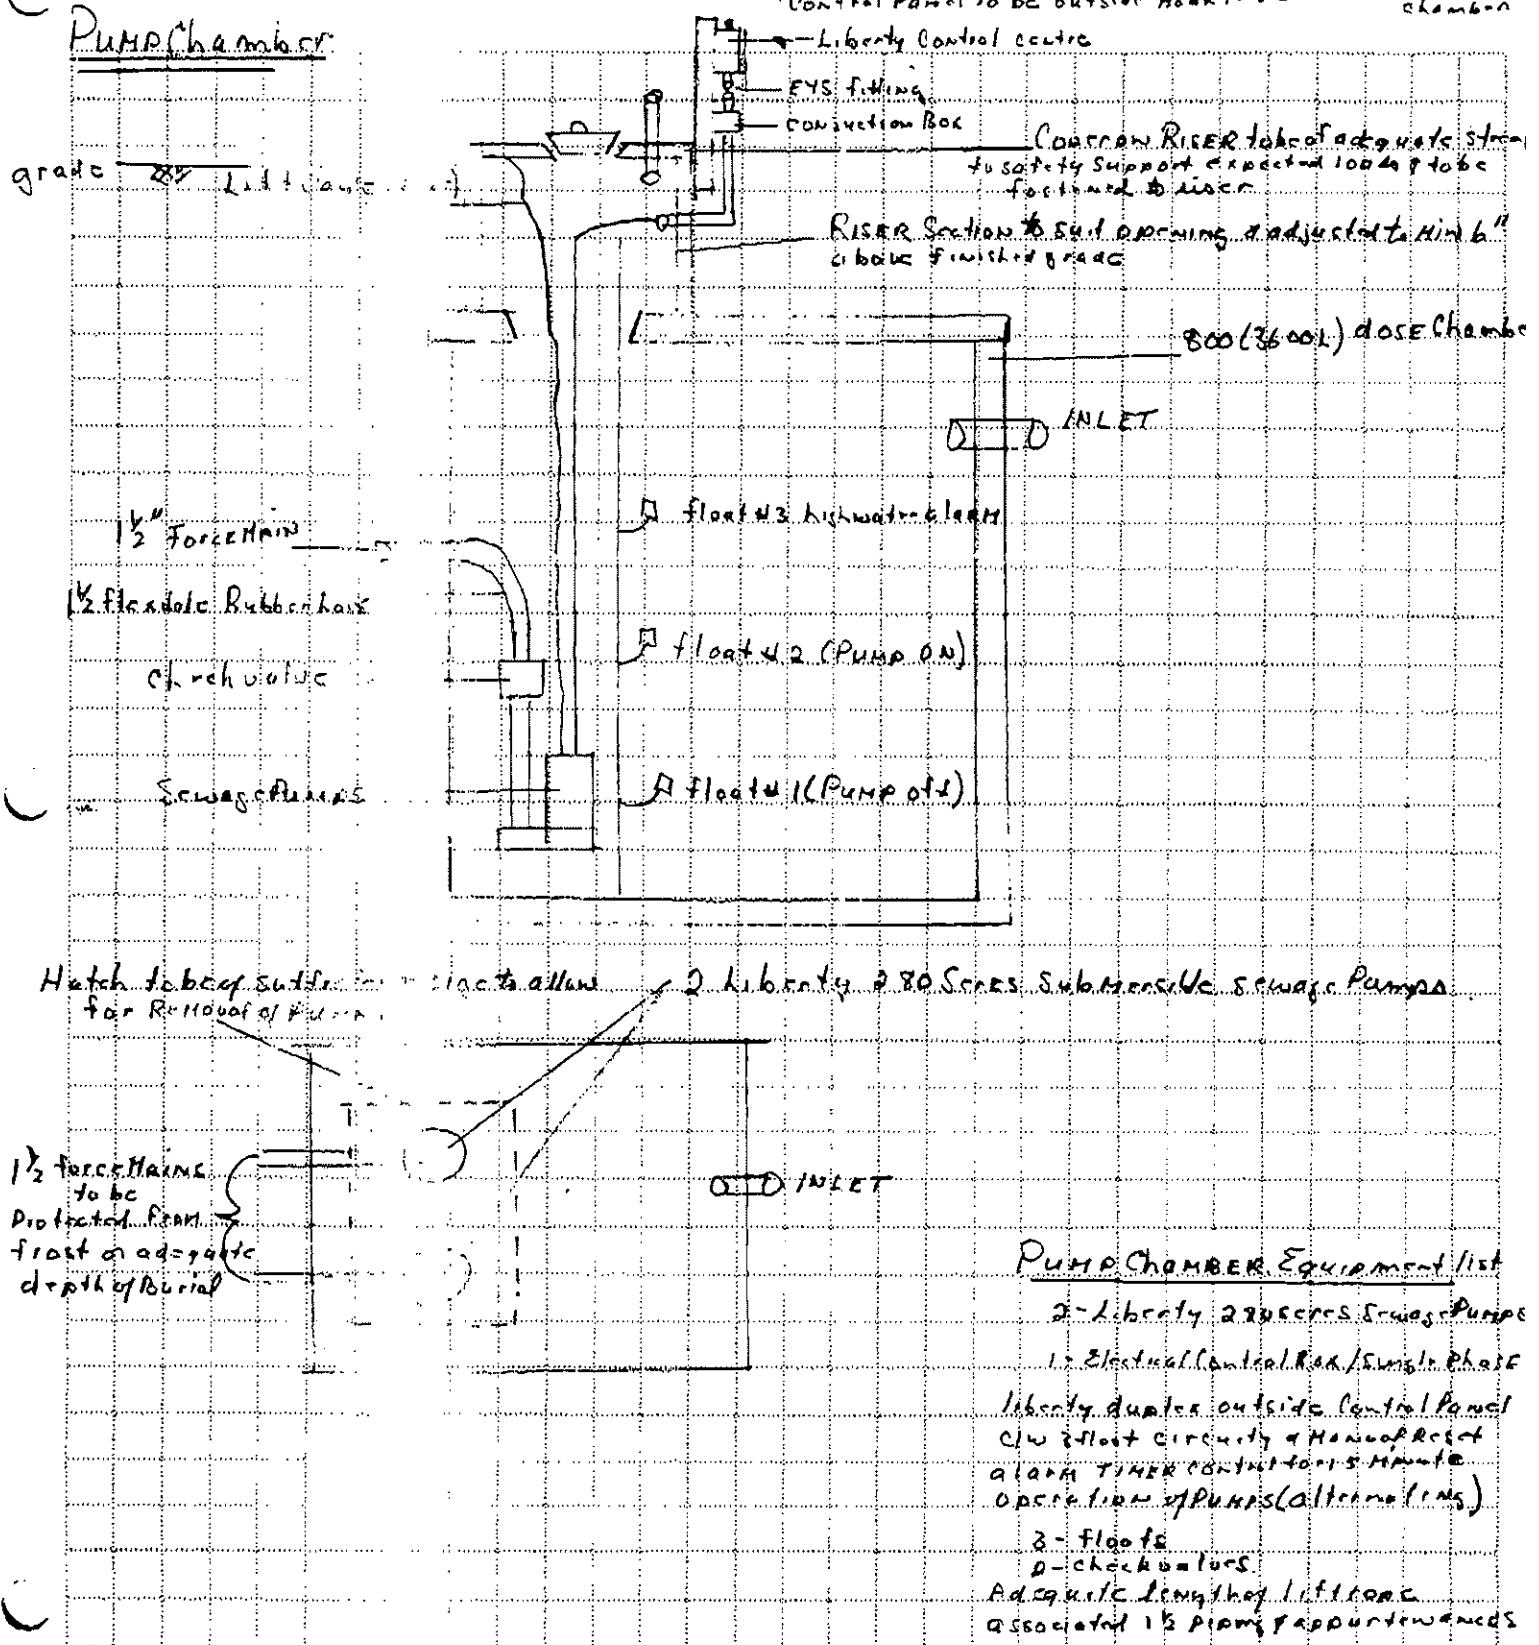 Control Panel to be outside
chamber
Pump Chamber
Liberty Control centre
EYS fitting
Conjuction Box
grade
Cover on Riser to be of adequate
to safety support expected loads & to be
fastened to riser
Riser Section to suit opening & adjusted to Min 6"
above finished grade
800 (3600L) dose
INLET
float #3 high water alarm
1½" Force Main
1½ flexible Rubber hose
float #2 (Pump ON)
Check valve
Sewage Pumps
float #1 (Pump off)
Hatch to be of to allow
for Removal of
2 Liberty 280 Series Submersible sewage Pumps
1½ force Mains
to be
Protected From
frost or adequate
depth of Burial
INLET
Pump Chamber Equipment list
2- Liberty 280 series Sewage Pumps
1- Electrical Control Box / Single Phase
liberty duplex outside Control Panel
C/W 3 float circuity & Manual Reset
alarm Timer control for 15 Minute
operation of Pumps (alternating)
3- floats
2- check valves
Adequite length of lift rope
associated 1½ piping & appurtenances